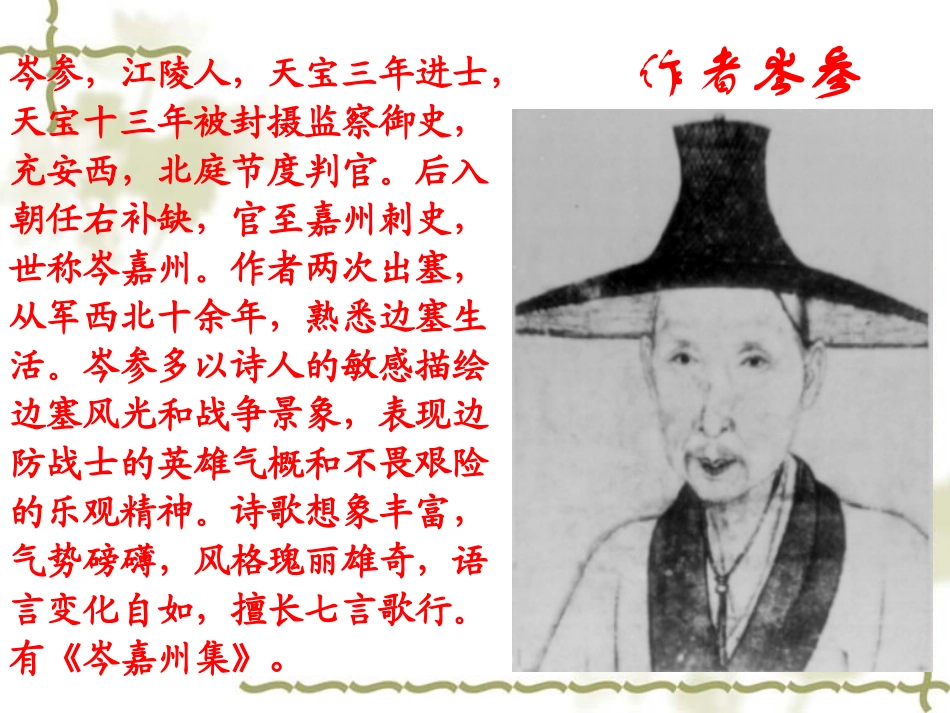 作者岑参
岑参，江陵人，天宝三年进士，
天宝十三年被封摄监察御史，
充安西，北庭节度判官。后入
朝任右补缺，官至嘉州刺史，
世称岑嘉州。作者两次出塞，
从军西北十余年，熟悉边塞生
活。岑参多以诗人的敏感描绘
边塞风光和战争景象，表现边
防战士的英雄气概和不畏艰险
的乐观精神。诗歌想象丰富，
气势磅礴，风格瑰丽雄奇，语
言变化自如，擅长七言歌行。
有《岑嘉州集》。